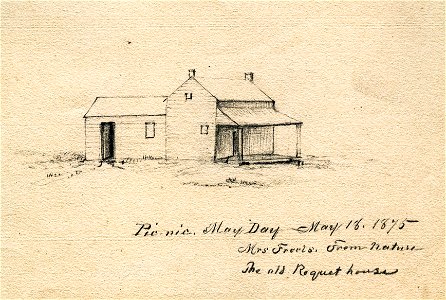 Pic-nic. May Day May 18. 1875
Mrs From Nature
The old Roquet house